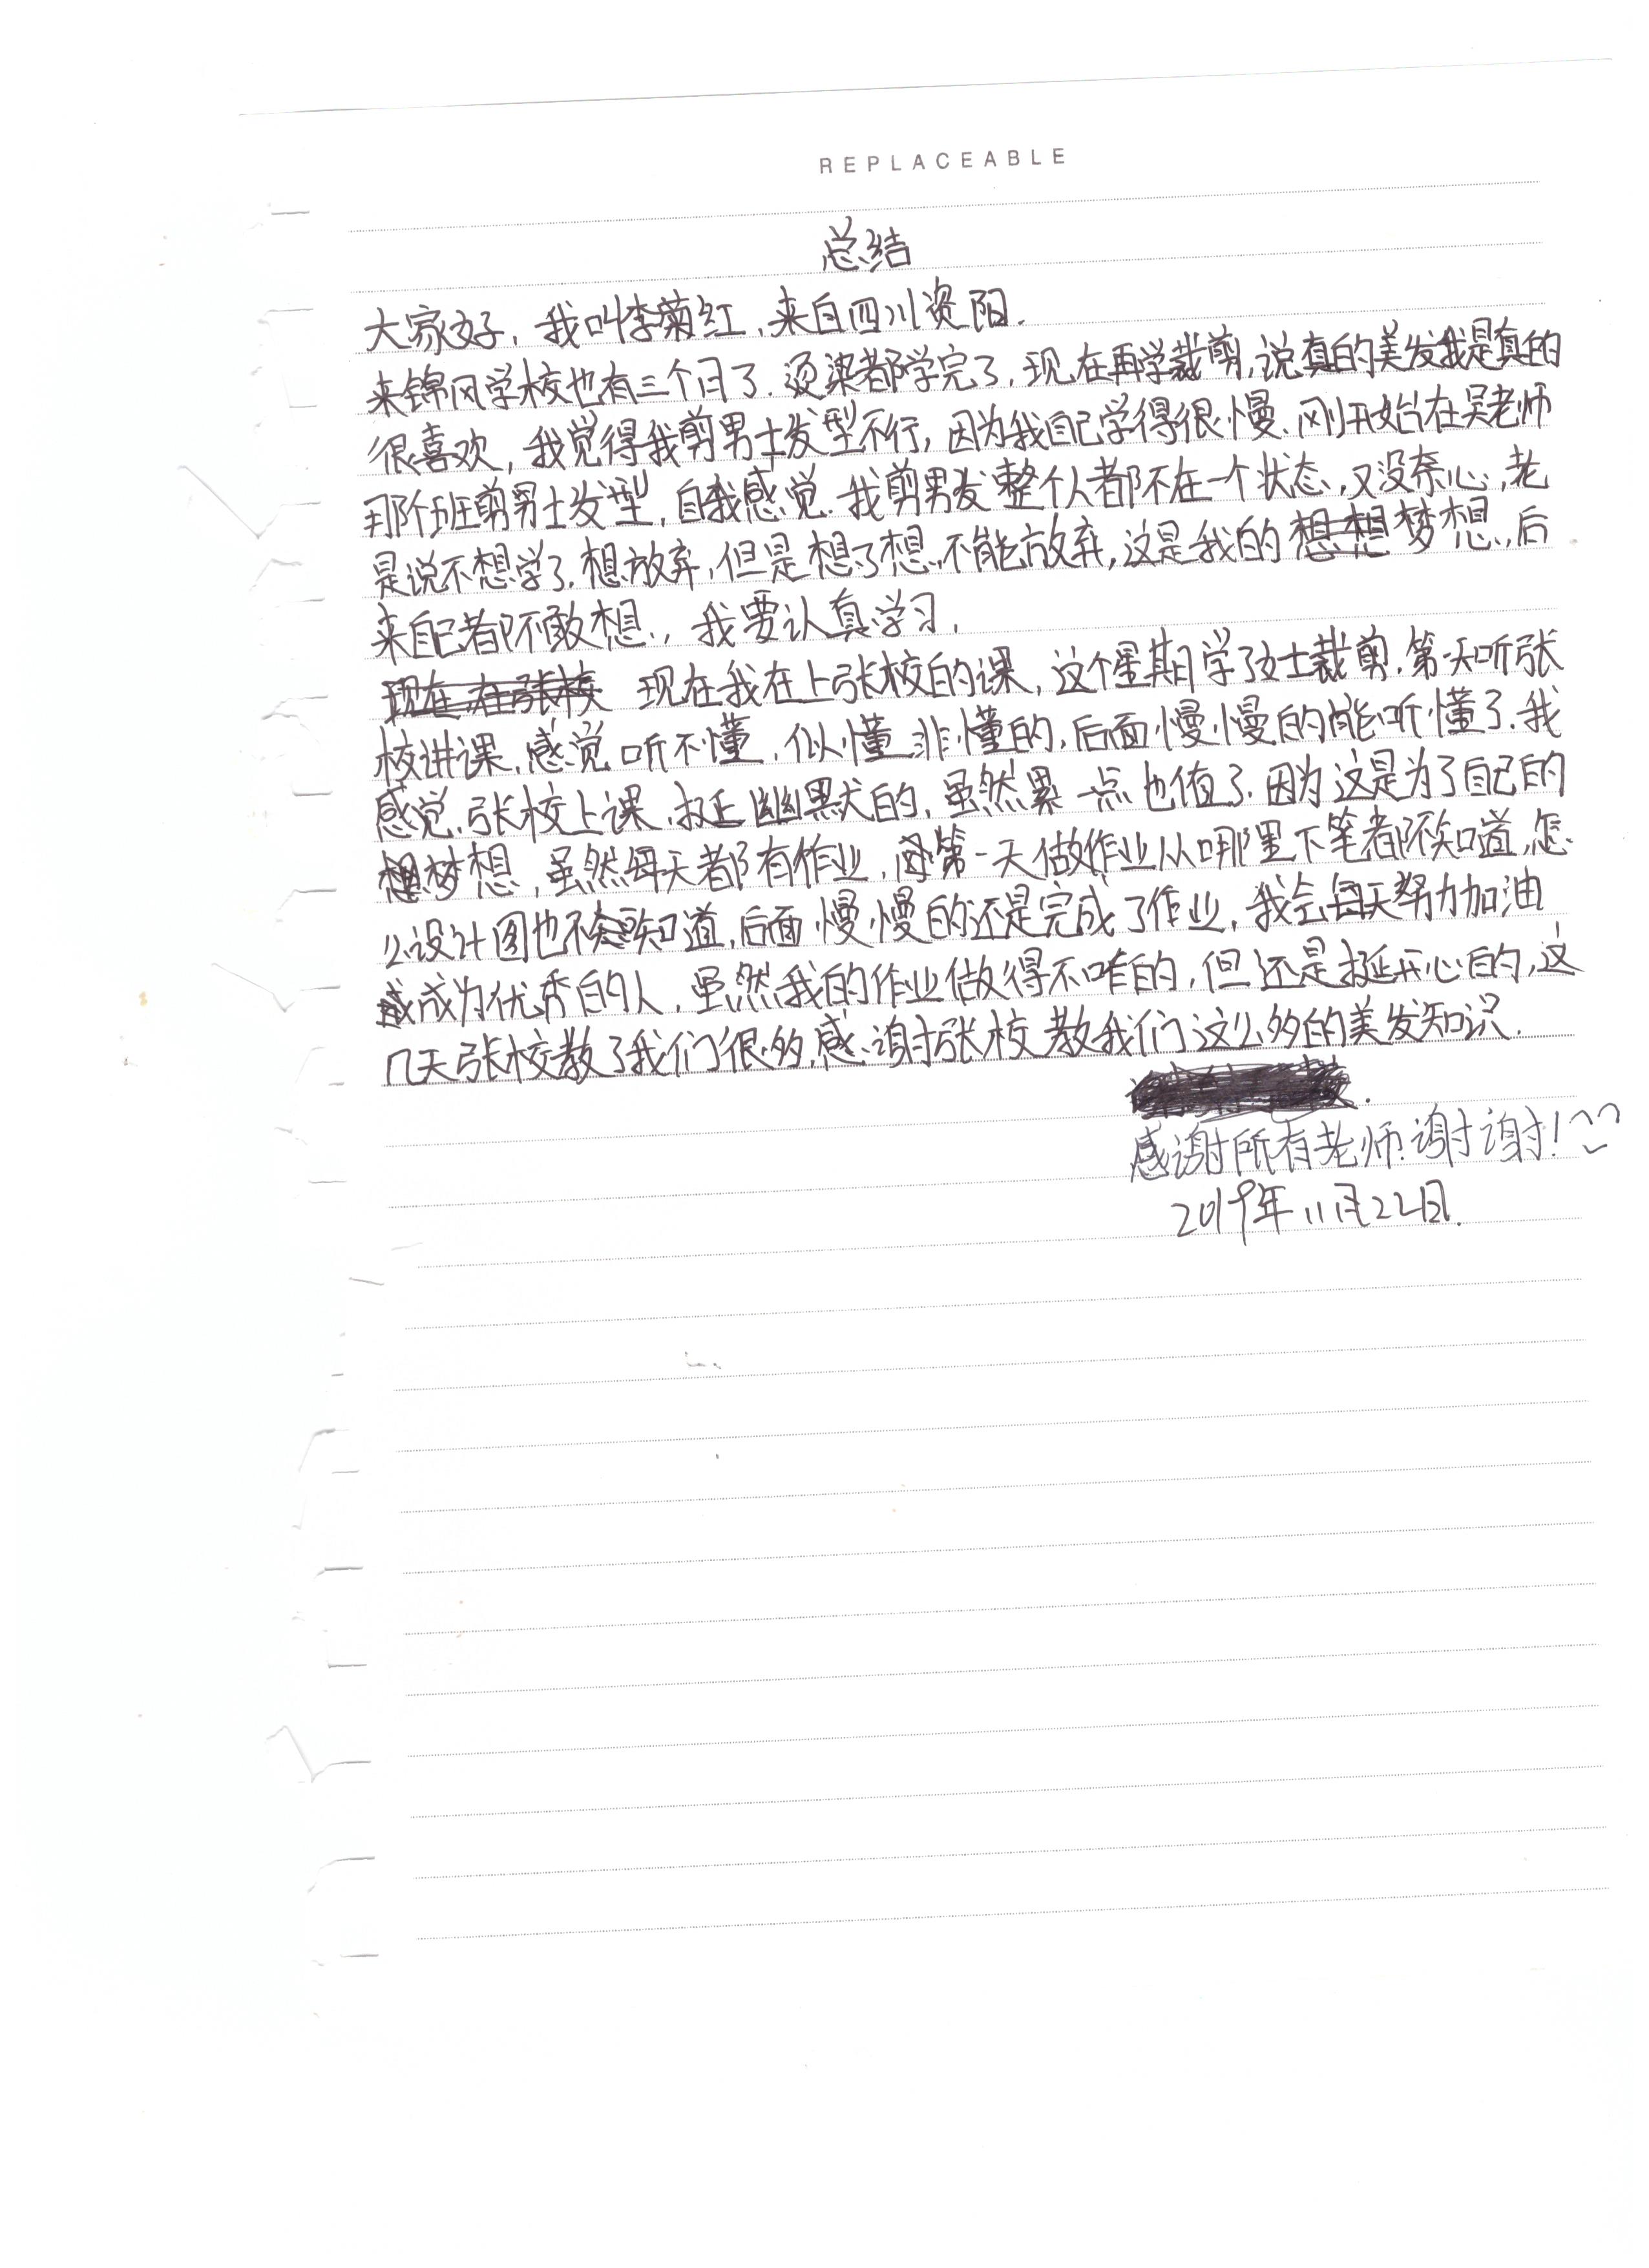 REPLACEABLE
总结
大家好，我叫李菊红，来自四川资阳.
来锦风学校也有三个月了.烫染都学完了，现在再学裁剪，说真的美发我是真的
很喜欢，我觉得我剪男士发型不行，因为我自己学得很慢.刚开始在吴老师
那个班剪男士发型，自我感觉.我剪男发整个人都不在一个状态，又没奈心，老
是说不想学了.想放弃，但是想了想.不能放弃，这是我的梦想，后
来自己都不敢想，我要认真学习.
现在我在上张校的课，这个星期学了女士裁剪.第一天听张
校讲课，感觉听不懂，似懂非懂的，后面慢慢的能听懂了.我
感觉.张校上课.挺幽默的，虽然累一点也值了.因为这是为了自己的
梦想，虽然每天都有作业，第一天做作业从哪里下笔都不知道，怎
么设计图也不知道，后面慢慢的还是完成了作业，我会每天努力加油
成为优秀的人，虽然我的作业做得不咋的，但还是挺开心的，这
几天张校教了我们很多，感谢张校教我们这么多的美发知识.
感谢所有老师!谢谢!
2019年11月22日.